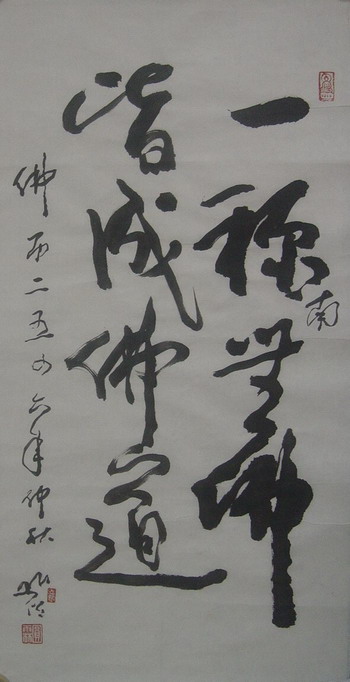 一稱南無佛
皆成佛道
佛二五四六年仲秋